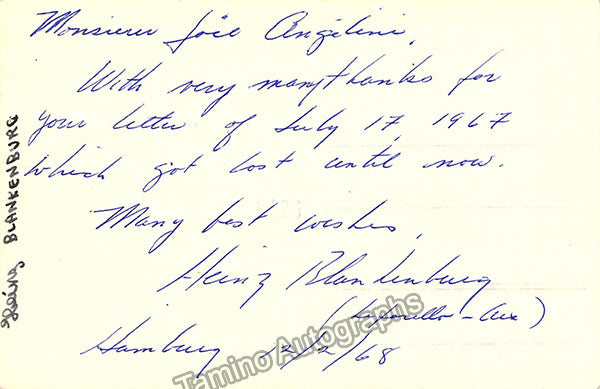 Monsieur Joël Angelini,
With very many thanks for
your letter of July 17, 1967
which got lost until now.
Many best wishes,
Heinz Blankenburg
(Leporello - Aix)
Hamburg 2/2/68
Heinz BLANKENBURG
Tamino Autographs